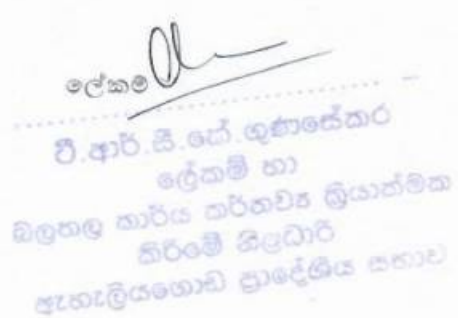 ලේකම්
ටී.ආර්.සී.කේ.ගුණසේකර
ලේකම් හා
බලතල කාර්ය කර්තව්‍ය ක්‍රියාත්මක
කිරිමේ නිලධාරි
ඇහැලියගොඩ ප්‍රාදේශීය සභාව